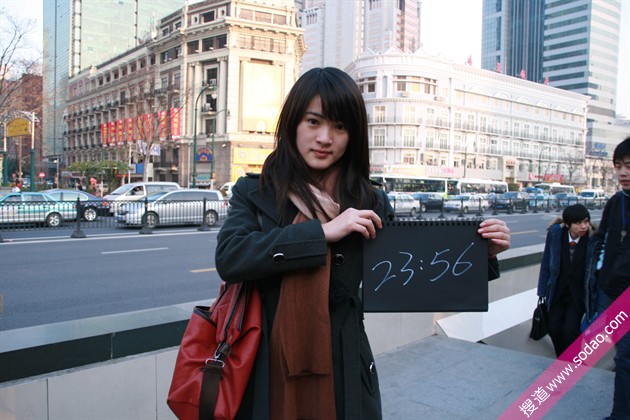 23:56
搜道 www.sodao.com